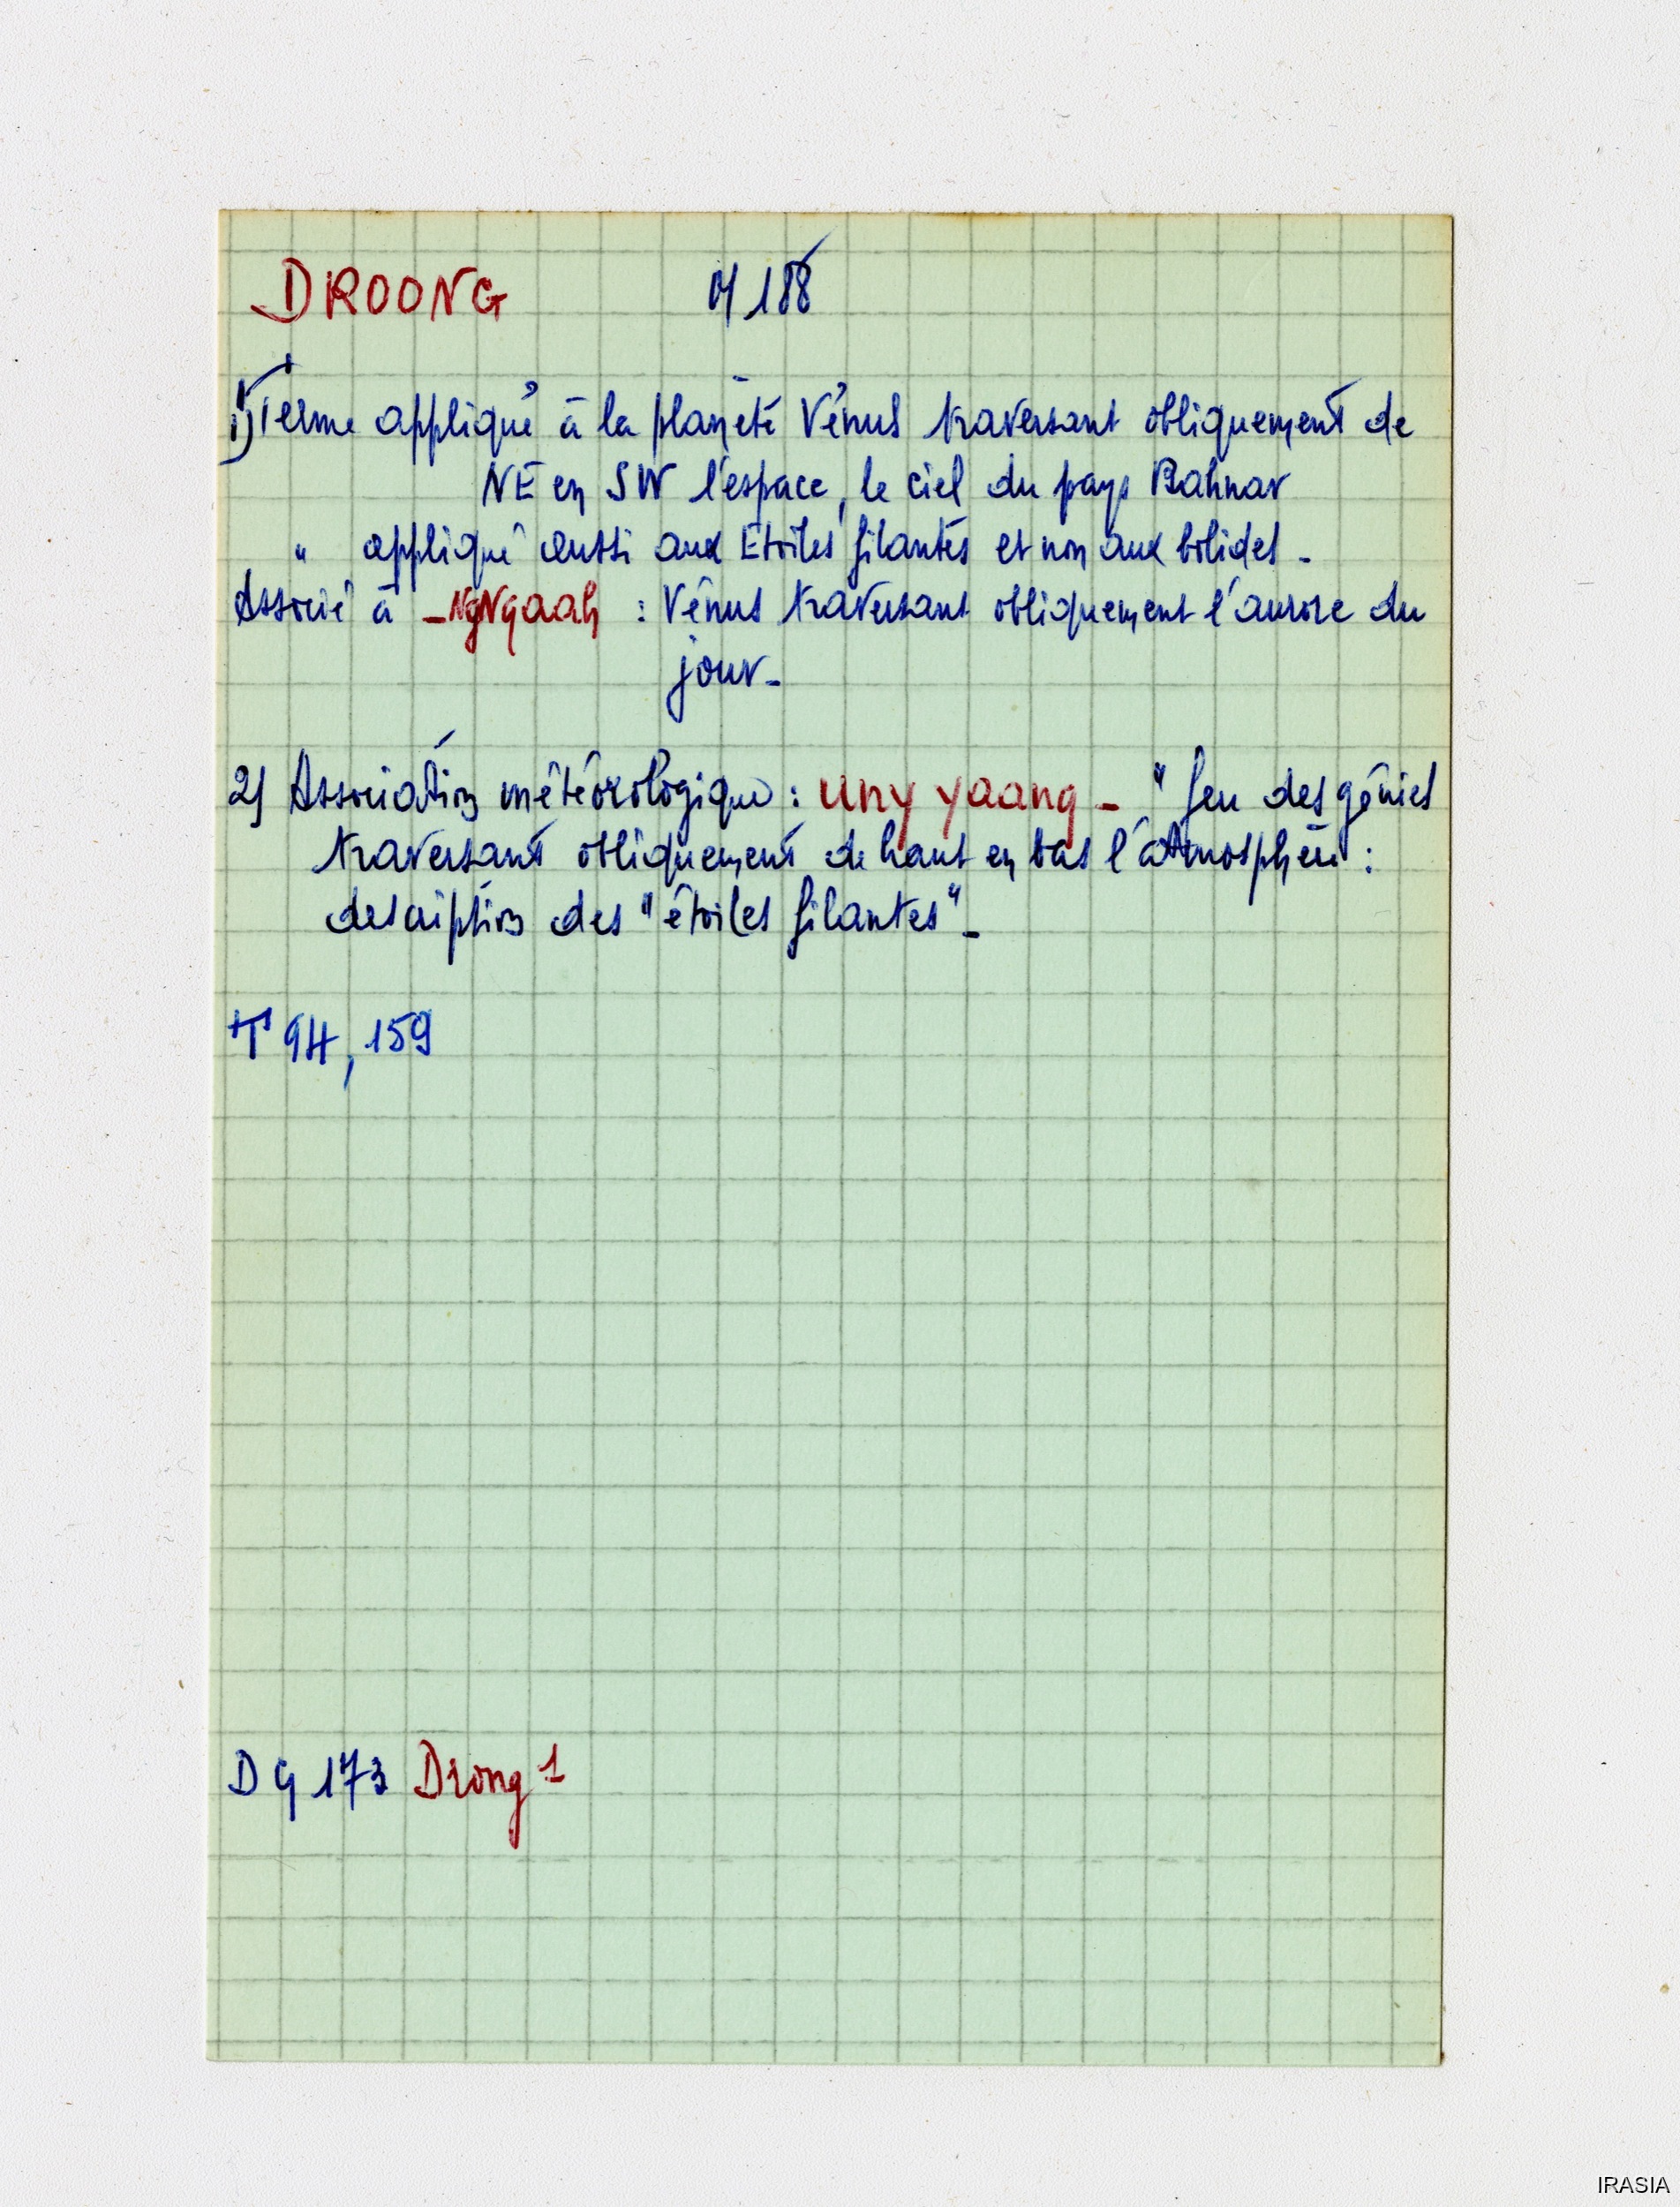 DROONG M 188
1) Terme appliqué à la planète Vénus traversant obliquement de
NE en SW l'espace, le ciel du pays Bahnar
" appliqué aussi aux Etoiles filantes et non aux bolides _
Associé à _ NgNgaah : Vénus traversant obliquement l'aurore du
jour _
2) Association météorologique : uny yaang _ " feu des génies
traversant obliquement de haut en bas l'atmosphère :
description des "étoiles filantes" _
T 94, 159
DG 173 Drong 1
IRASIA